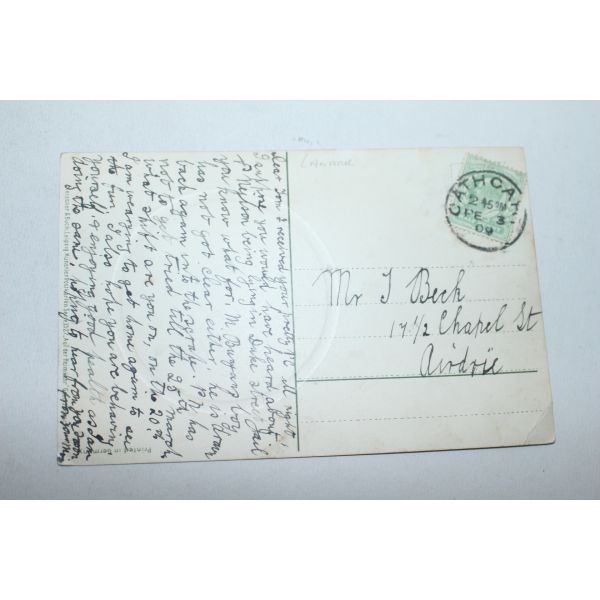 Dear Tom I received your pretty P.C. all right
I suppose you would have heard about
T. Wilson being lying in Duke Street Jail
you know what for, M. Duggans boy
has not got clear either, he is thrown
back again into the garde. 17th has
not to get tried till the 2nd March.
what shift are you on on the 20th
I am wearying to get home again to see
the fun I also hope you are behaving
yourself & enjoying good health as I am
doing the same, hoping to hear from you soon
Mr T Beck
17 1/2 Chapel St
Airdrie
CATHCAR
2 45 PM
FE 3
09
Printed in Germ